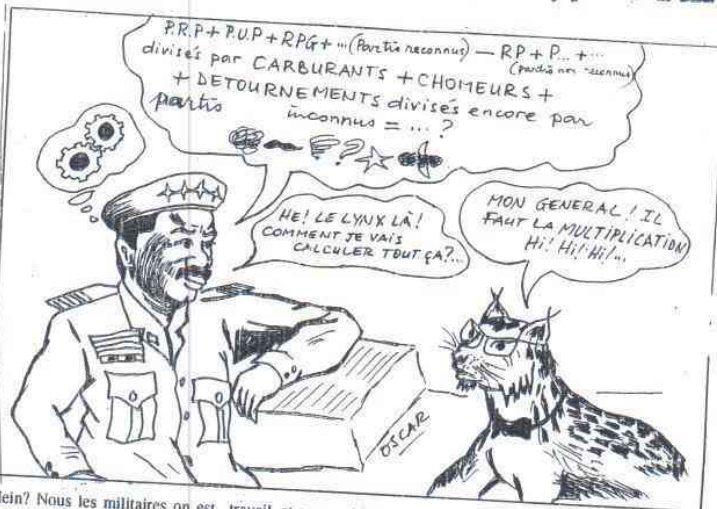 P.R.P + P.U.P + RPG + ... (Partis reconnus) — RP + P... + ...
(partis non reconnus)
divisés par CARBURANTS + CHOMEURS +
+ DETOURNEMENTS divisés encore par
partis inconnus = ... ?
HE! LE LYNX LÀ!
COMMENT JE VAIS
CALCULER TOUT ÇA?...
MON GENERAL! IL
FAUT LA MULTIPLICATION
Hi! Hi! Hi!...
OSCAR
Hein? Nous les militaires on est travail